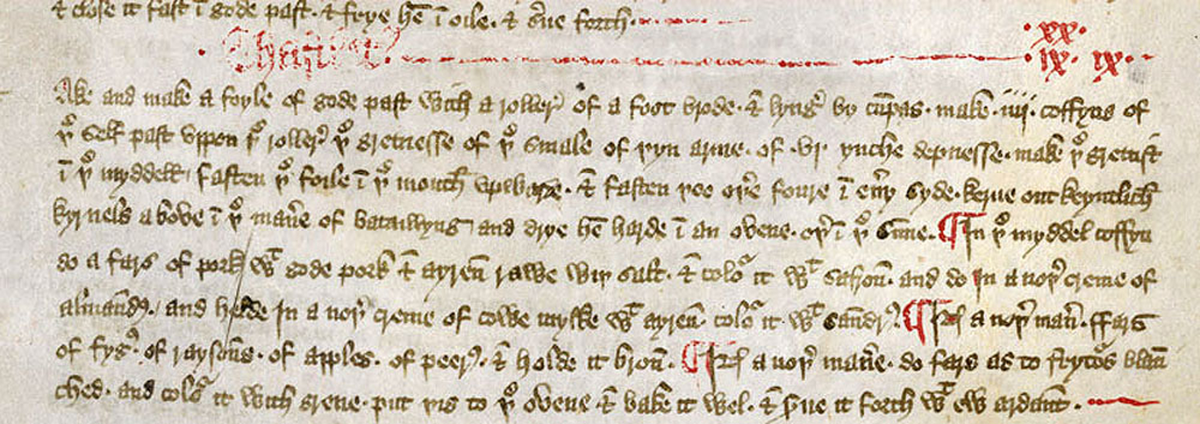 & close it fast ī gode past. & frye hē ī oile. & sṽue forth.
Chastlet. .xx.
.ıx. ıx.
Ake and make a foyle of gode past with a roller of a foot brode. & lyngʳ by cūpas. make .iiii. coffyns of
þͤ self past vppon þͤ rollerʳ þͤ gretnesse of þͤ smale of þyn arme. of .vi. ynche depnesse. make þͤ gretust
ī þͤ myddell. fasten þͤ foile ī þͤ mouth vpwarde. & fasten þee oþͤe foure ī eūy syde. kerue out keyntlich
kyrnels above ī þͤ man̄e of bataiwyng and drye hē harde ī an ovene. oþͥ ī þͤ sūne. ¶ In þͤ myddel coffyn
do a fars of pork wͭ gode pork & ayren̄ rawe wiþ salt. & coloͬ it wͭ safroun̄. and do in anoþͥ creme of
almandꝭ. and helde in anoþͥ creme of cowe mylke wͭ ayren̄. coloͬ it wͭ sandrꝭ. ¶ Itͫ anoþͥ man̄. ffars
of fygꝭ. of raysōns. of apples. of peerꝭ. & holde it broū. ¶ Itͫ anoþͥ man̄e. do fars as to frytoͬs blan̄
ched. and coloͬ it with grene. put þis to þͤ ovene & bake it wel. & sṽue it forth wͭ ew ardant̄.